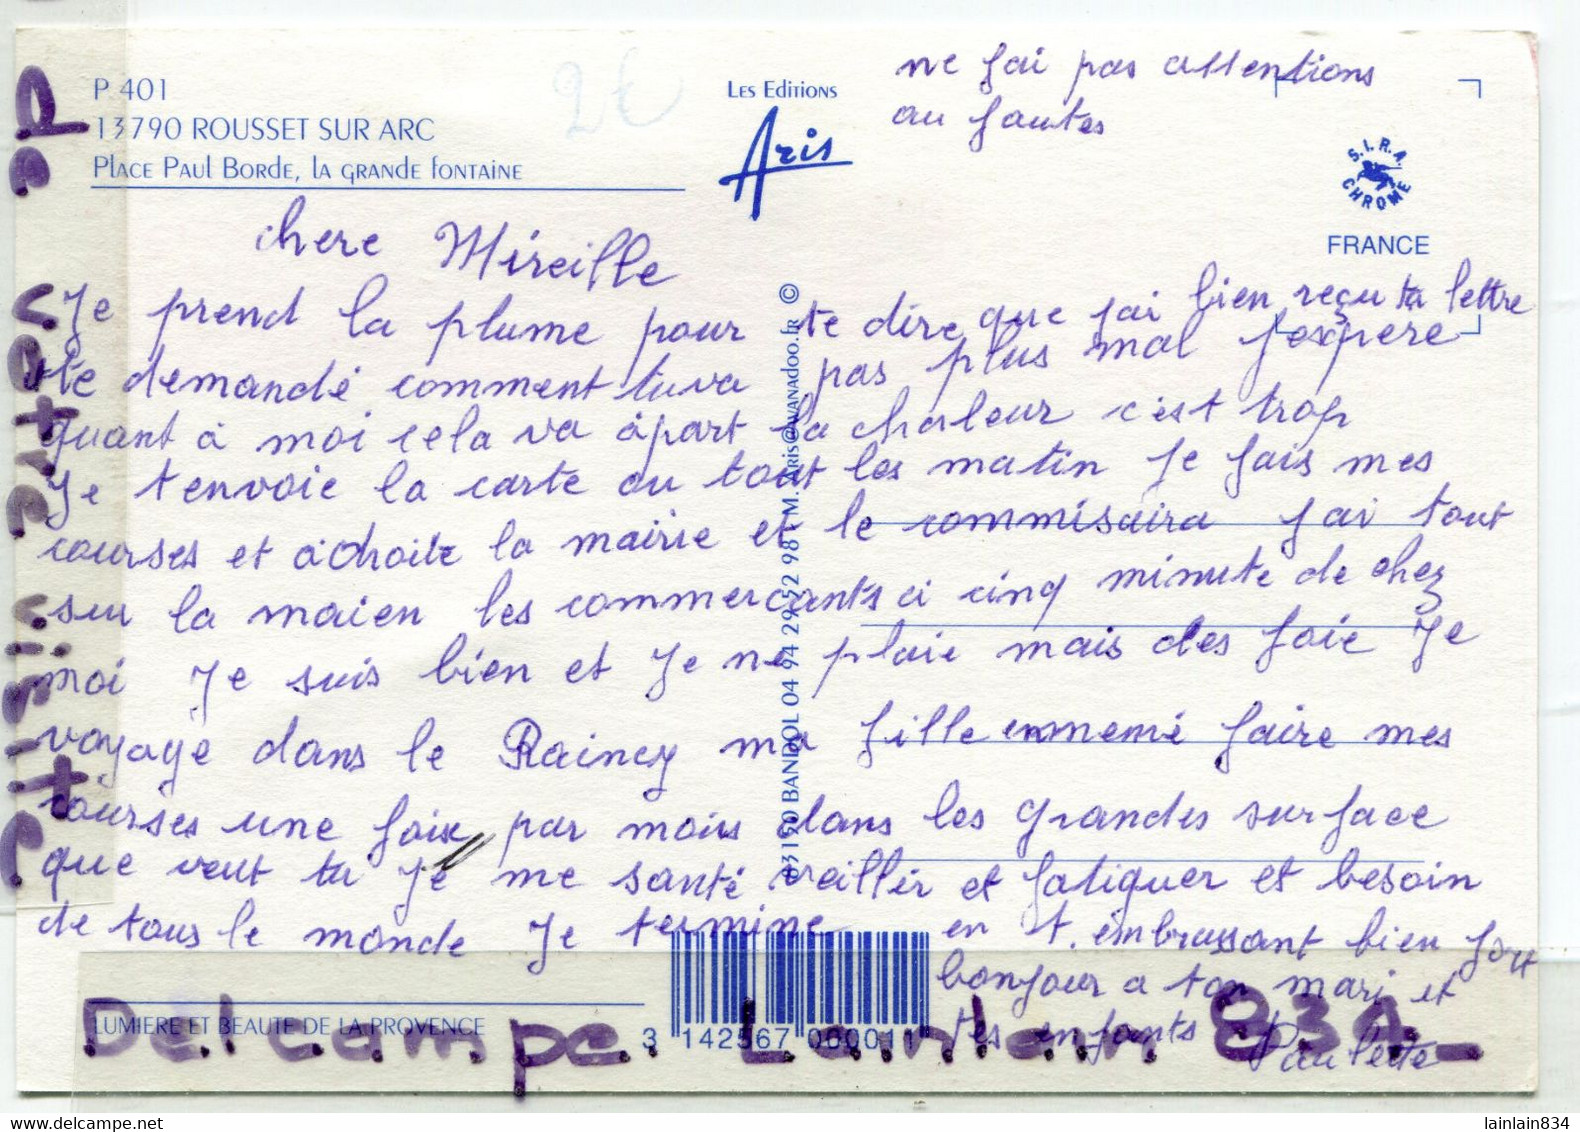 P 401
13790 ROUSSET SUR ARC
Place Paul Borde, la grande fontaine
2€
Les Editions
Aris
ne fai pas attentions
au fautes
S.I.R.A.
CHROME
FRANCE
chere Mireille
Je prend la plume pour te dire que jai bien reçu ta lettre
te demandé comment tuva pas plus mal jespere
quant a moi cela va apart la chaleur c'est trop
Je tenvoie la carte ou tout les matin Je fais mes
courses et adroite la mairie et le commisaira jai tout
sur la maien les commercants a cinq minute de chez
moi Je suis bien et Je ne plaie mais des foie Je
voyage dans le Raincy ma fille emmené faire mes
courses une foix par mois dans les grandes surface
que veut tu Je me santé vieillir et fatiguer et besoin
de tous le monde Je termine en t. embrassant bien fort
bonjour a ton mari et
tes enfants
Paulette
83150 BANDOL 04 94 29 52 98 M. Aris@wanadoo.fr ©
LUMIERE ET BEAUTE DE LA PROVENCE
3 142567 000011
De votre visite
Delcampe. Lainlain 834
www.delcampe.net
lainlain834